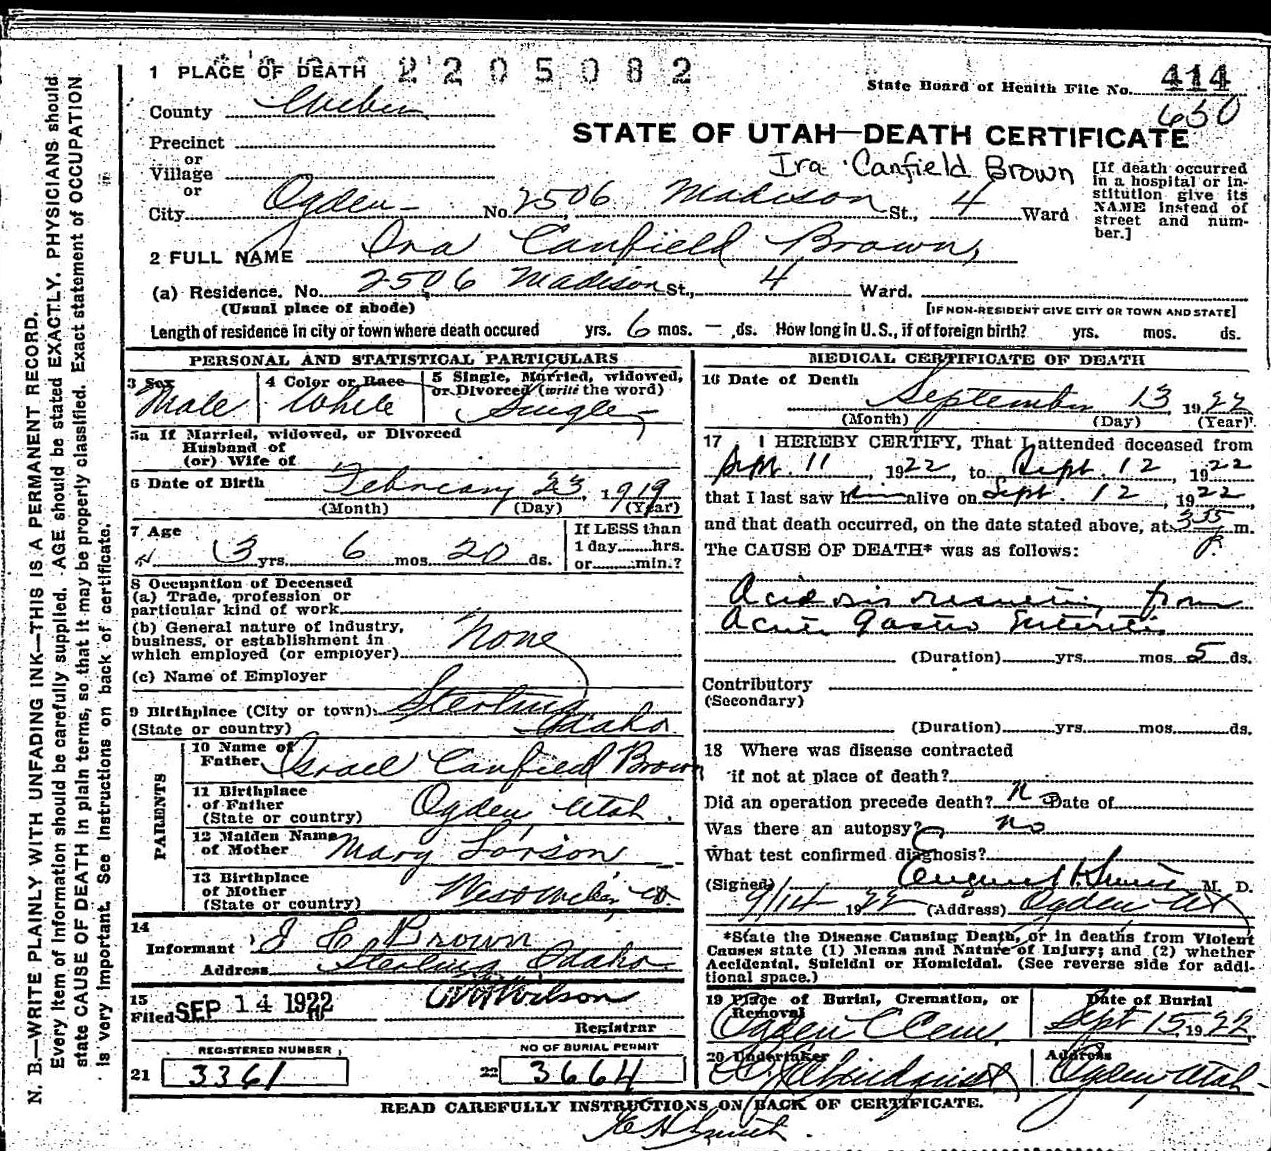 1 PLACE OF DEATH 2205082
State Board of Health File No. 414
County Weber 630
Precinct
STATE OF UTAH—DEATH CERTIFICATE
or
Village
Ira Canfield Brown
or
City Ogden No. 2506 Madison St., 4 Ward
[If death occurred in a hospital or institution give its NAME instead of street and number.]
2 FULL NAME Ira Canfield Brown,
(a) Residence. No. 2506 Madison St., 4 Ward.
(Usual place of abode) [IF NON-RESIDENT GIVE CITY OR TOWN AND STATE]
Length of residence in city or town where death occured yrs. 6 mos. – ds. How long in U.S., if of foreign birth? yrs. mos. ds.
PERSONAL AND STATISTICAL PARTICULARS
3 Sex Male
4 Color or Race White
5 Single, Married, widowed, or Divorced (write the word) Single
5a If Married, widowed, or Divorced
Husband of
(or) Wife of
6 Date of Birth February 23, 1919
(Month) (Day) (Year)
7 Age 3 yrs. 6 mos. 20 ds.
If LESS than
1 day hrs.
or min.?
8 Occupation of Deceased
(a) Trade, profession or
particular kind of work
(b) General nature of industry,
business, or establishment in
which employed (or employer) None
(c) Name of Employer
9 Birthplace (City or town) Sterling
(State or country) Idaho
PARENTS
10 Name of
Father Israel Canfield Brown
11 Birthplace
of Father
(State or country) Ogden Utah.
12 Maiden Name
of Mother Mary Larson
13 Birthplace
of Mother
(State or country) West Weber, Ut
14
Informant I C Brown
Address Sterling Idaho
15
Filed SEP 14 1922 Wilson
Registrar
REGISTERED NUMBER NO OF BURIAL PERMIT
21 3361 22 3664
MEDICAL CERTIFICATE OF DEATH
16 Date of Death September 13 1922
(Month) (Day) (Year)
17 I HEREBY CERTIFY, That I attended deceased from
Sept. 11, 1922, to Sept. 12, 1922
that I last saw h alive on Sept. 12, 1922,
and that death occurred, on the date stated above, at 3 55 P. m.
The CAUSE OF DEATH* was as follows:
Acidosis resulting from
Acute Gastro Enteritis
(Duration) yrs. mos. 5 ds.
Contributory
(Secondary)
(Duration) yrs. mos. ds.
18 Where was disease contracted
if not at place of death?
Did an operation precede death? No Date of
Was there an autopsy? no
What test confirmed diagnosis?
(Signed) M. D.
9/14 1922 (Address) Ogden Ut
*State the Disease Causing Death, or in deaths from Violent
Causes state (1) Means and Nature of Injury; and (2) whether
Accidental, Suicidal or Homicidal. (See reverse side for addi-
tional space.)
19 Place of Burial, Cremation, or
Removal Ogden C Cem.
Date of Burial
Sept 15 1922
20 Undertaker Lindquist
Address
Ogden, Utah
READ CAREFULLY INSTRUCTIONS ON BACK OF CERTIFICATE.
Smith.
N. B.—WRITE PLAINLY WITH UNFADING INK—THIS IS A PERMANENT RECORD.
Every item of information should be carefully supplied. AGE should be stated EXACTLY. PHYSICIANS should
state CAUSE OF DEATH in plain terms, so that it may be properly classified. Exact statement of OCCUPATION
is very important. See instructions on back of certificate.